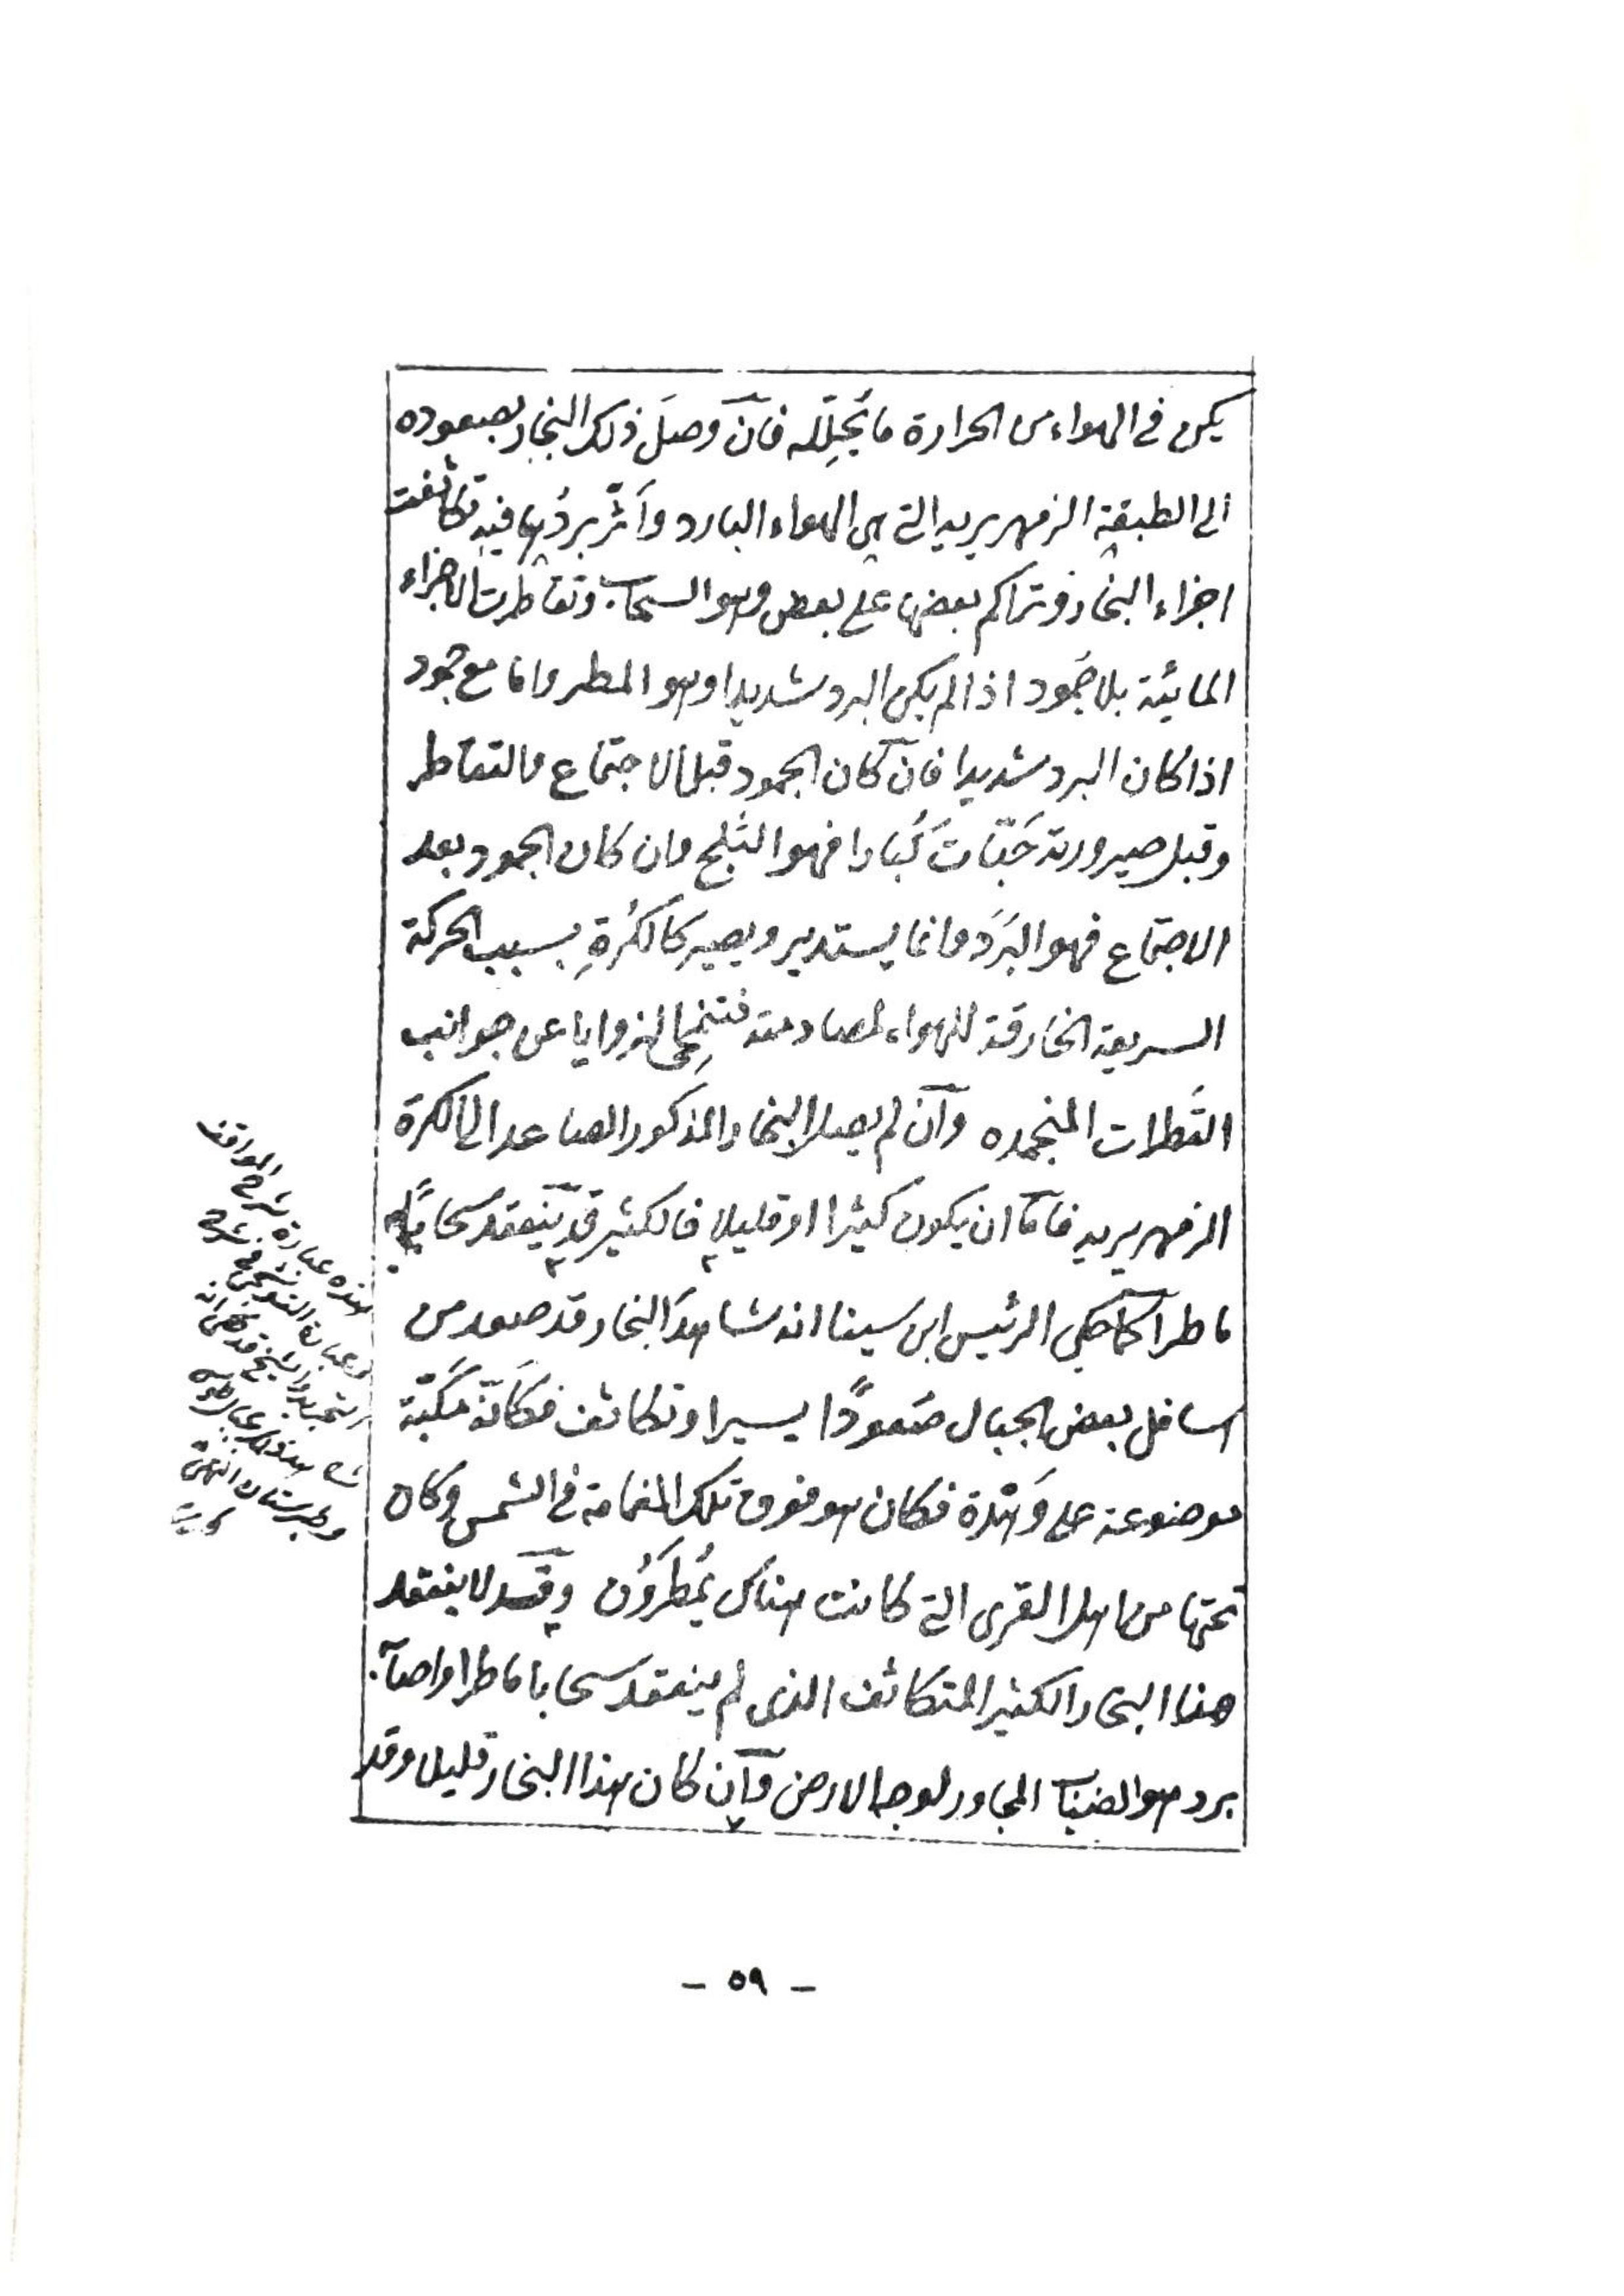 يكن في الهواء من الحرارة ما يُحَلِّله فان وصلَ ذلك البخار بصعوده
الى الطبقة الزمهريريه التي هي الهواء البارد واَثّر بردُها فيه تكاثفت
اجزاء البخار وتراكم بعضها على بعض وهو السحاب وتقاطرت الاجزاء
المائيّة بلا جُمود اذا لم يكن البرد شديدا وهو المطر واما مع جمود
اذا كان البرد شديدا فان كان الجمود قبل الاجتماع والتقاطر
وقبل صيرورته حَبّات كُبارا فهو الثَلج وان كان الجمود بعد
الاجتماع فهو البَرَد وانما يستدير ويصير كالكُرةِ بسبب الحركة
السريعة الخارقة للهواء لمصادمته فتنمحِى الزوايا عن جوانب
القَطرات المنجمده وان لم يصل البخار المذكور الصاعد الى الكرة
الزمهريريه فامّا ان يكون كثيرا او قليلا فالكثير قد ينعقد سحاباً
ماطرا كما حكى الرئيس ابن سينا انه شاهدَ البخار قد صعد من
اسافل بعض الجبال صُعودًا يسيرا وتكاثف فكَأنّه مكبّة
موضوعة على وَهْدة فكان هو فوق تلك الغمامة في الشمس وكان
تحتها من اهل القرى التي كانت هناك يُمطَرُون وقد لا ينعقد
هذا البخار الكثير المتكاثف الذى لم ينعقد سحابا ماطرا واصابه
برد هو الضباب المجاور لوجه الارض وان كان هذا البخار قليلا وقد
هذه عبارة شرح المواقف
وعبارة القوشجى في شرح
التجريد والشيخ قد حكى انه
شاهد ذلك بجبال طوس
وطبرستان انتهى
- ٥٩ -